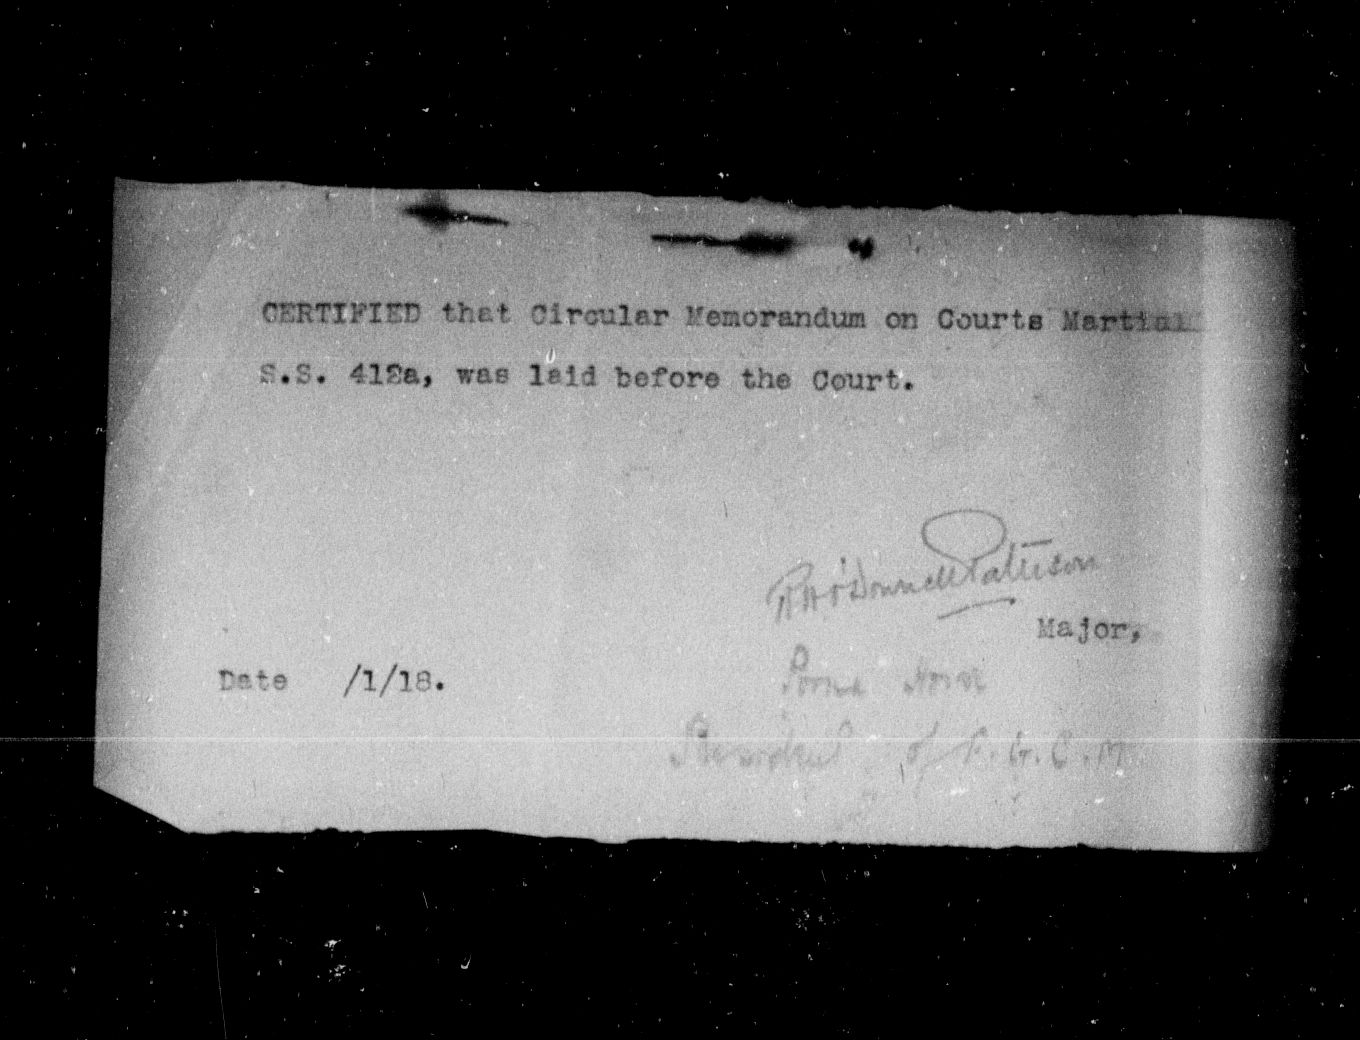 CERTIFIED that Circular Memorandum on Courts Martial
S.S. 412a, was laid before the Court.
R H O'Donnell Pattison
Major,
Date /1/18.
President of F.G.C.M